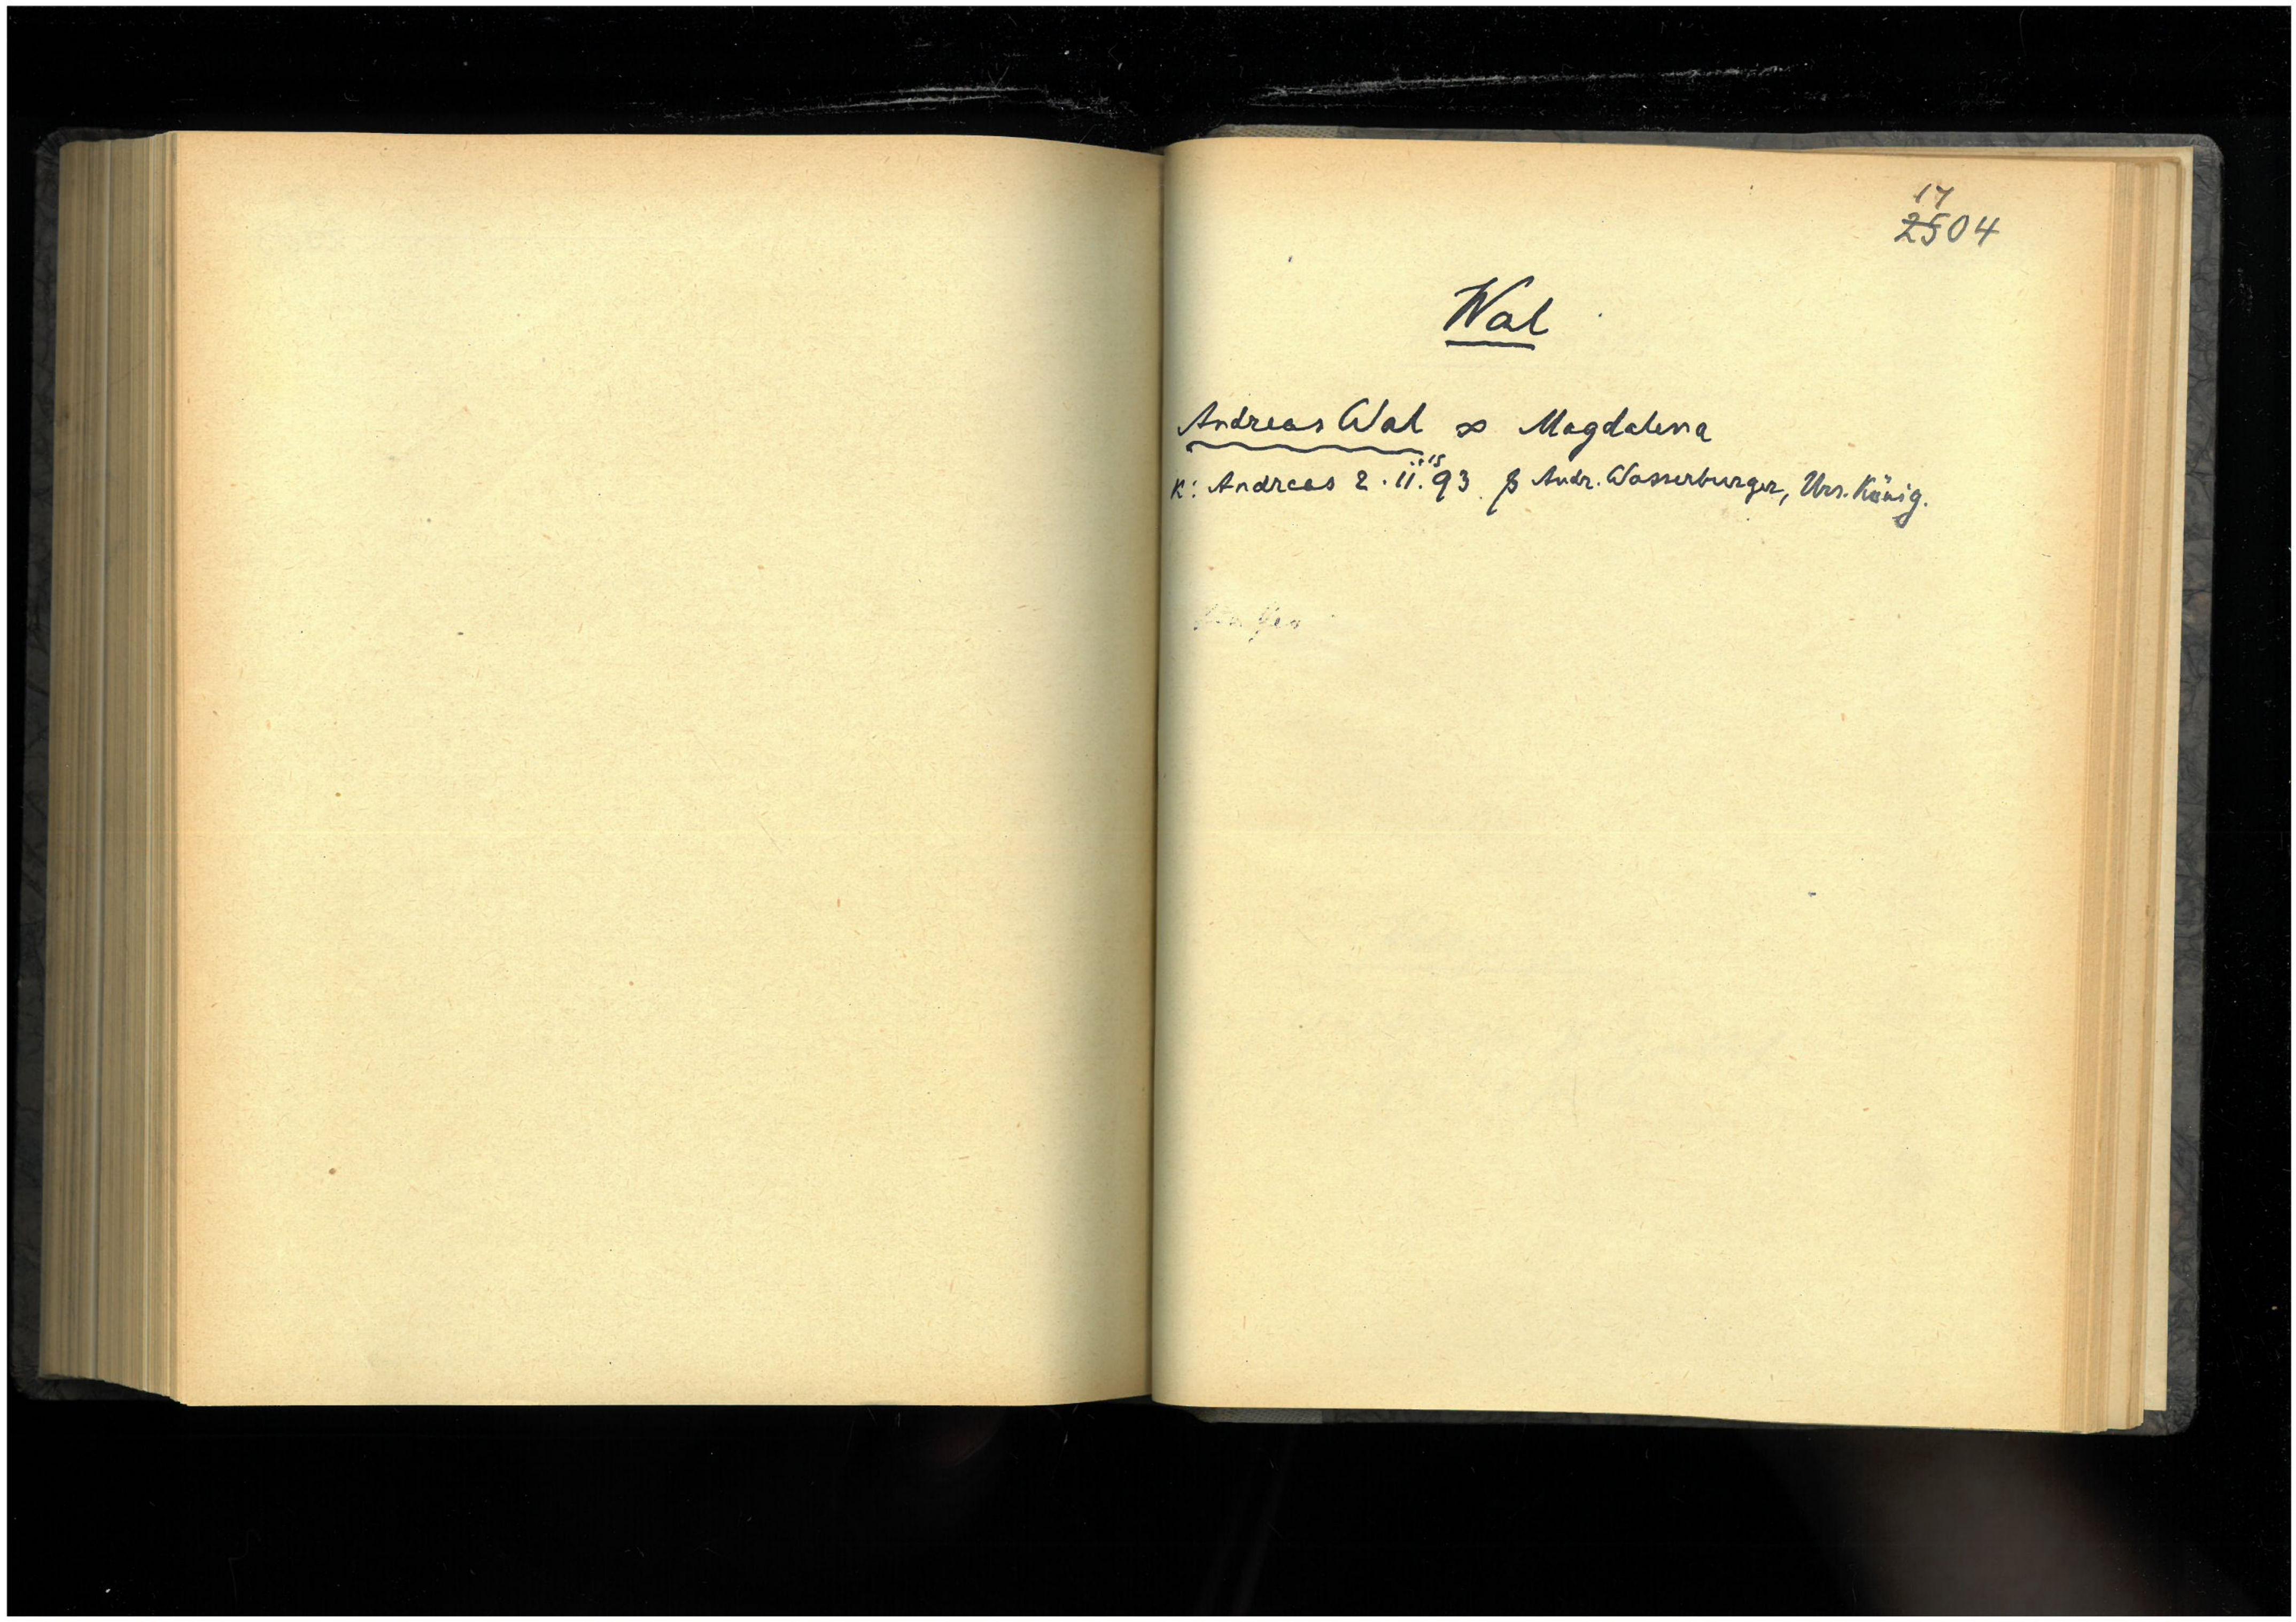 17
2504
Wal
Andreas Wal ∞ Magdalena
15
K: Andreas 2. 11. 93. P Andr. Wasserburger, Urs. König.